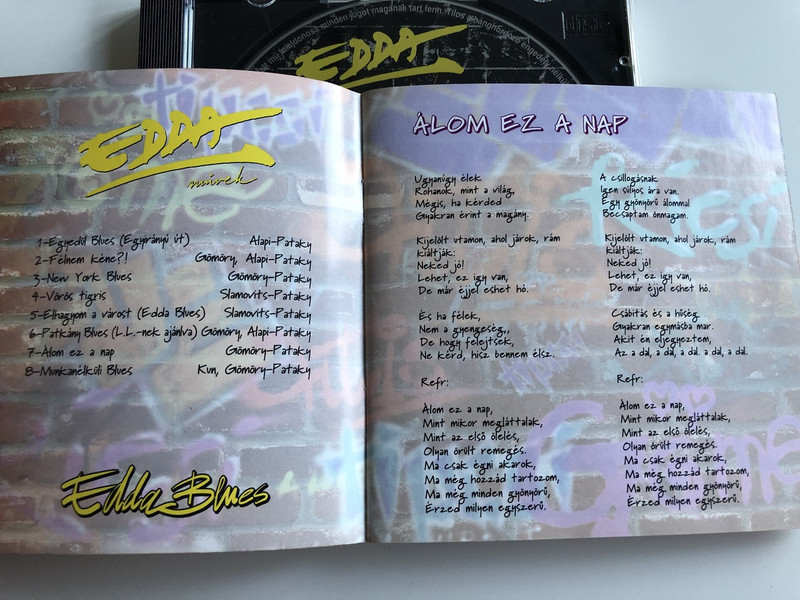 mű tulajdonosa minden jogot magának tart fenn. Tilos a
EDDA
EDDA
művek
1-Egyedül Blues (Egyirányú út) Alapi-Pataky
2-Félnem kéne?! Gömöry, Alapi-Pataky
3-New York Blues Gömöry-Pataky
4-Vörös tigris Slamovits-Pataky
5-Elhagyom a várost (Edda Blues) Slamovits-Pataky
6-Patkány Blues (L.L.-nek ajánlva) Gömöry, Alapi-Pataky
7-Álom ez a nap Gömöry-Pataky
8-Munkanélküli Blues Kun, Gömöry-Pataky
Edda Blues
ÁLOM EZ A NAP
Ugyanúgy élek
Rohanok, mint a világ,
Mégis, ha kérded
Gyakran érint a magány.
Kijelölt utamon, ahol járok, rám
kiáltják:
Neked jó!
Lehet, ez így van,
De már éjjel eshet hó.
És ha félek,
Nem a gyengeség,,
De hogy felejtsek,
Ne kérd, hisz bennem élsz.
Refr:
Álom ez a nap,
Mint mikor megláttalak,
Mint az első ölelés,
Olyan őrült remegés.
Ma csak égni akarok,
Ma még hozzád tartozom,
Ma még minden gyönyörű,
Érzed milyen egyszerű.
A csillogásnak
Igen súlyos ára van.
Egy gyönyörű álommal
Becsaptam önmagam.
Kijelölt utamon, ahol járok, rám
kiáltják:
Neked jó!
Lehet, ez így van,
De már éjjel eshet hó.
Csábítás és a hűség
Gyakran egymásba mar.
Akit én eljegyeztem,
Az a dal, a dal, a dal. a dal, a dal.
Refr:
Álom ez a nap,
Mint mikor megláttalak,
Mint az első ölelés,
Olyan őrült remegés.
Ma csak égni akarok,
Ma még hozzád tartozom,
Ma még minden gyönyörű,
Érzed milyen egyszerű.